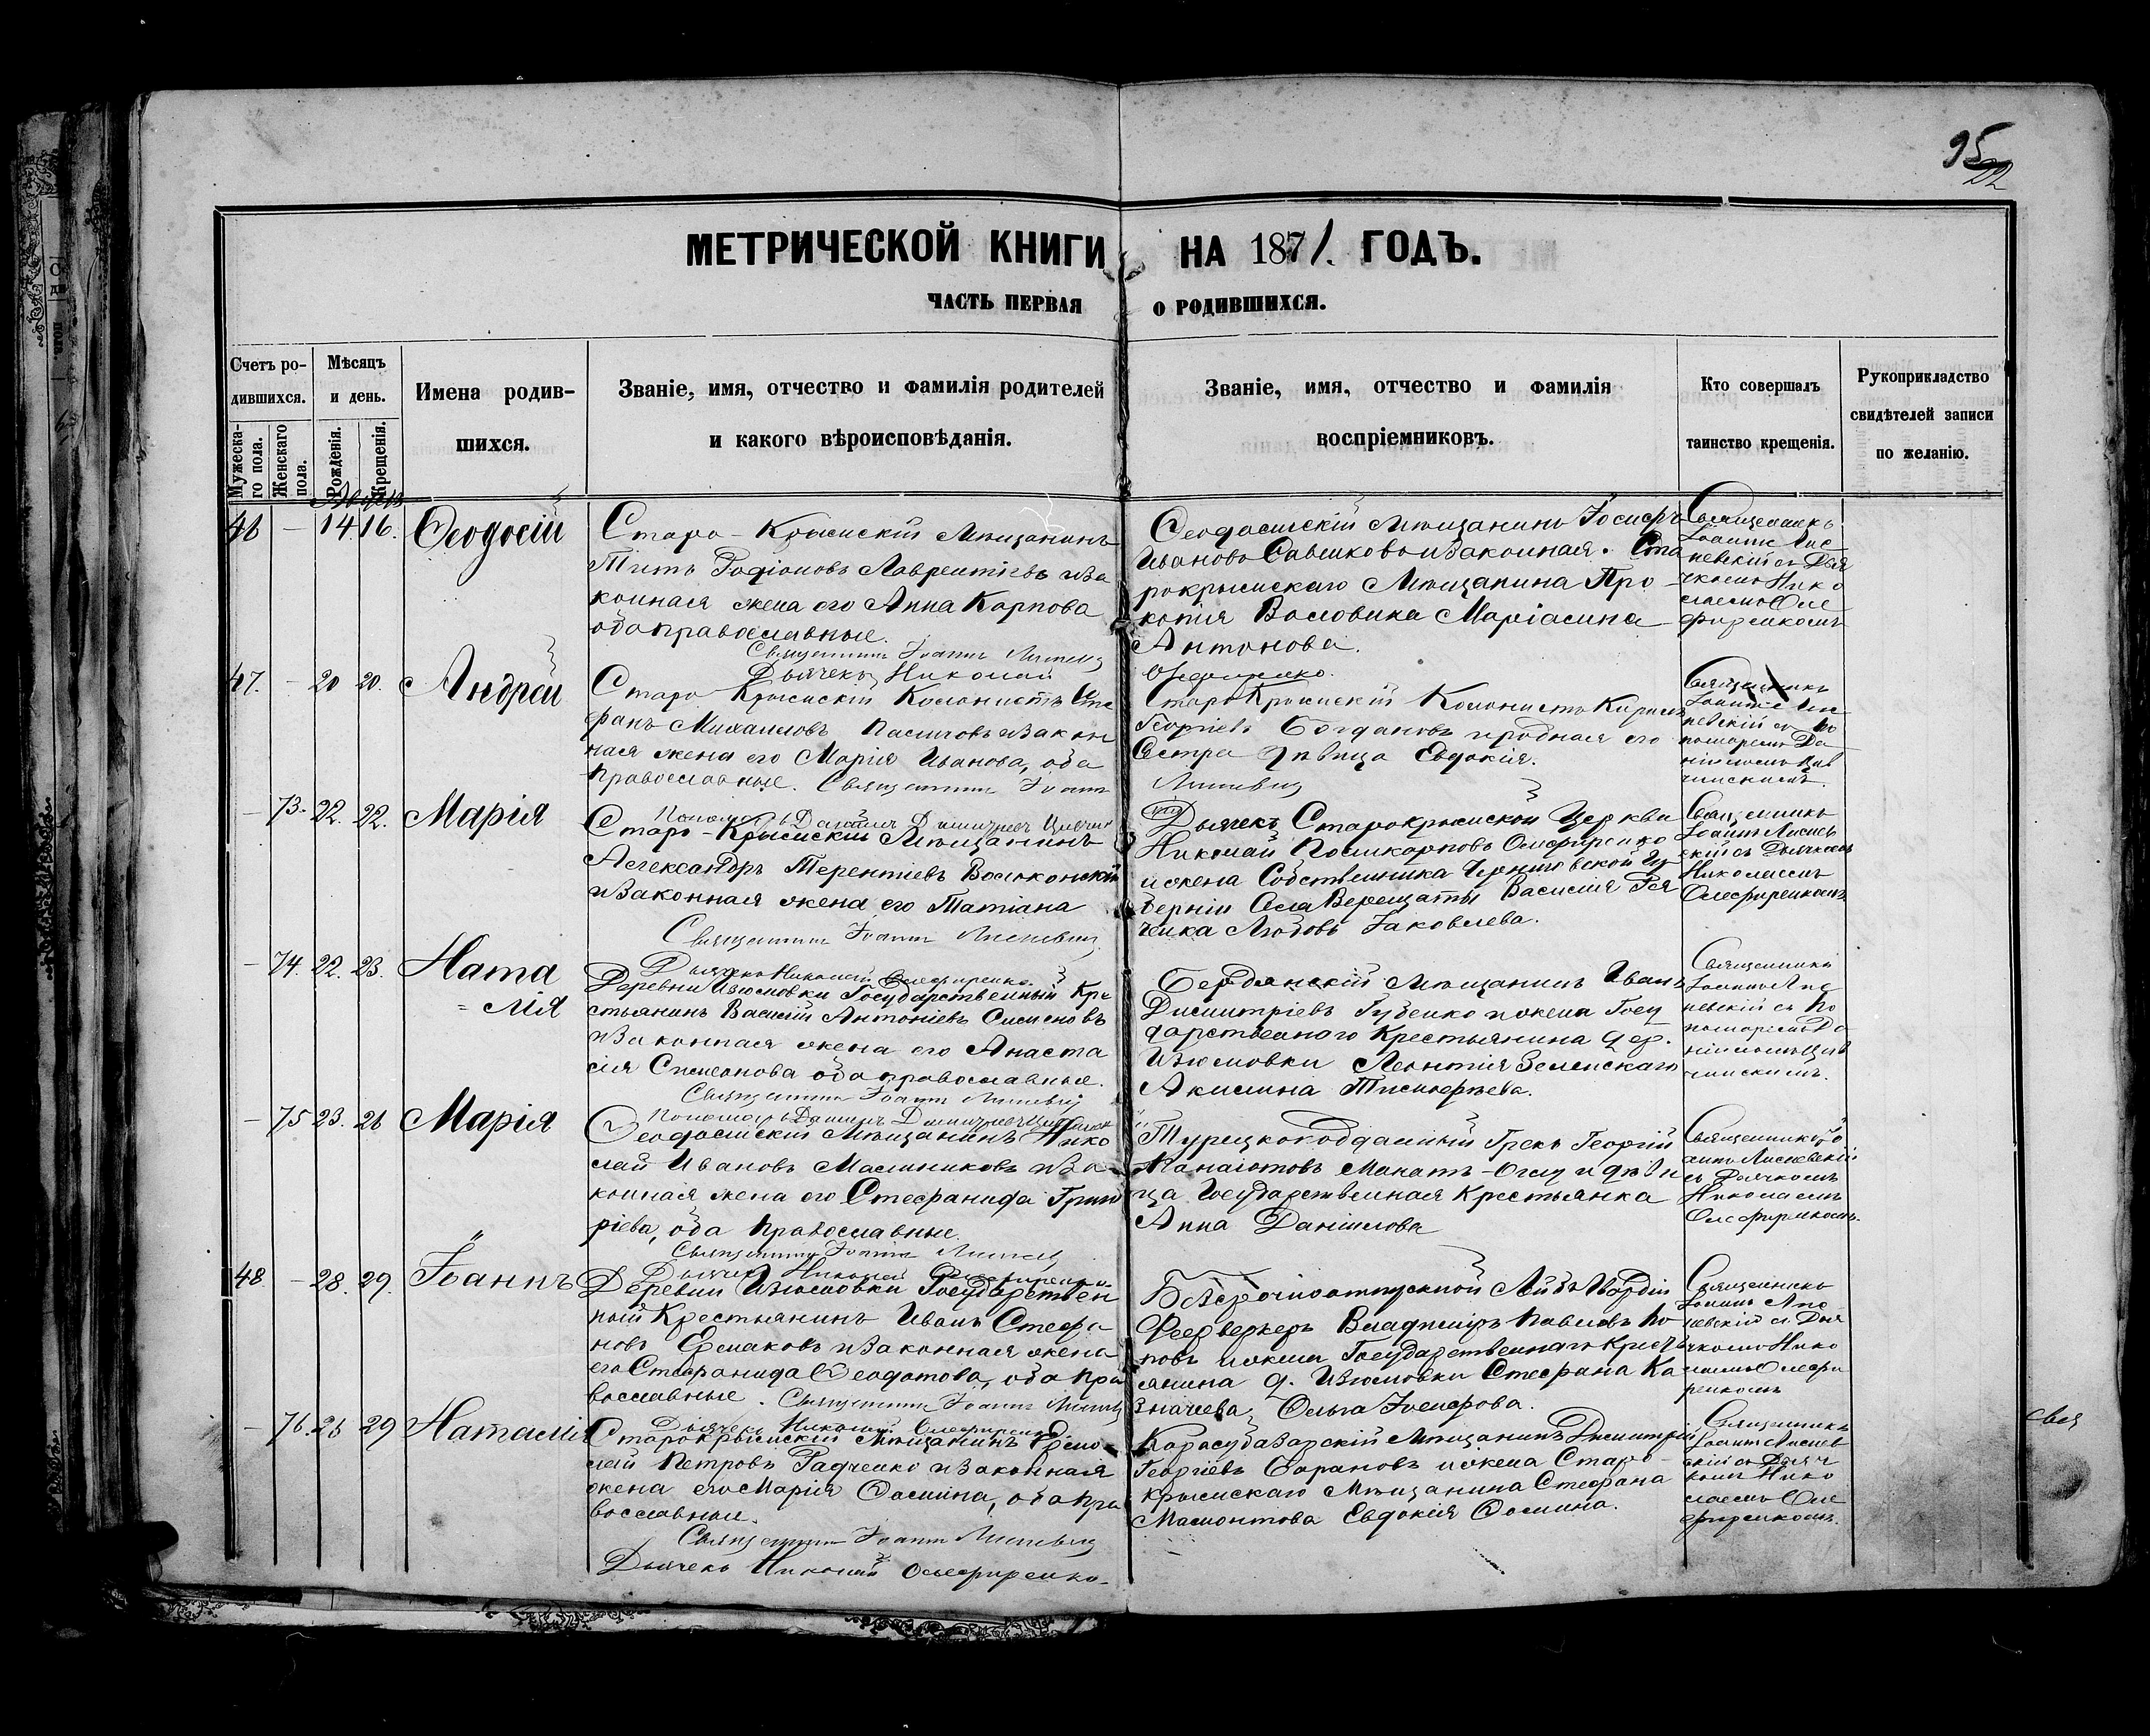 95
22
МЕТРИЧЕСКОЙ КНИГИ НА 1871. ГОДЪ.
ЧАСТЬ ПЕРВАЯ О РОДИВШИХСЯ.
Счетъ ро-
дившихся.
Мужеска-
го пола.
Женскаго
пола.
Мѣсяцъ
и день.
Рожденія.
Крещенія.
Имена родив-
шихся.
Званіе, имя, отчество и фамилія родителей
и какого вѣроисповѣданія.
Званіе, имя, отчество и фамилія
воспріемниковъ.
Кто совершалъ
таинство крещенія.
Рукоприкладство
свидѣтелей записи
по желанію.
46 – 14 16. Ѳеодосій
Старо-Крымскій Мѣщанинъ
Титъ Родіоновъ Лаврентіевъ и за
конная жена его Анна Карпова
оба православные.
Священникъ Іоаннъ
Дьячекъ Николай
Ѳеодосійскій Мѣщанинъ Іосифъ
Ивановъ и законная. Ста
рокрымскаго Мѣщанина Про-
копія Воловика
Антонова.
Священникъ
Іоаннъ Лис
невскій съ Дья
чкомъ Нико
лаемъ Оле
фиренкомъ
47. – 20 20. Андрей
Старо Крымскій Колонистъ Сте
фанъ Михаиловъ и закон
ная жена его Марія Иванова, оба
православные. Священникъ Іоаннъ
Старо Крымскій Колонистъ Кирилъ
Георгіевъ Богдановъ и родная его
Сестра дѣвица Евдокія.
Священникъ
Іоаннъ Лис
невскій съ по
номаремъ Да
ніиломъ
– 73. 22. 22. Марія
Старо-Крымскій Мѣщанинъ
Александръ Терентіевъ Волоконскій
и законная жена его Татіана
Священникъ Іоаннъ
Дьячекъ Николай Олефиренко.
Дьячекъ Старокрымской Церкви
Николай Поликарповъ Олефиренко
и жена Собственника Черниговской Гу
берніи Села Верещаты Василія
Любовь Іаковлева.
Священникъ
Іоаннъ Лиснев
скій съ Дьячкомъ
Николаемъ
Олефиренкомъ
– 74. 22. 23. Ната
= лія
Деревни Изюмовки Государственный Кре
стьянинъ Василій Антоніевъ Симоновъ
и законная жена его Анаста
сія Симеонова оба православные.
Священникъ Іоаннъ
Бердянскій Мѣщанинъ Иванъ
Димитріевъ Губенко и жена Госу
дарственного Крестьянина дер.
Изюмовки Леонтія Зеленскаго
Акилина Тимофѣева.
Священникъ
Іоаннъ Лис
невскій съ По
номаремъ Да
ніиломъ
– 75 23. 26 Марія
Ѳеодосійскій Мѣщанинъ Нико
лай Ивановъ Масленниковъ и за
конная жена его Стефанида Григо
ріева, оба православные.
Священникъ Іоаннъ
Дьячекъ Николай Олефиренко.
Турецкоподданный Грекъ Георгій
Панаіотовъ Манатъ-Оглу и дѣви
ца Государственная Крестьянка
Анна Даніилова
Священникъ Іо
аннъ Лисневскій
съ Дьячкомъ
Николаемъ
Олефиренкомъ.
48. – 28. 29. Іоаннъ
Деревни Изюмовки Государствен
ный Крестьянинъ Иванъ Стефа
новъ Ермаковъ и законная жена
его Стефанида Ѳеодотова, оба пра
вославные. Священникъ Іоаннъ
Дьячекъ Николай Олефиренко.
Безсрочноотпускной Лейбъ Гвардіи
Феерверкеръ Владимиръ Павловъ По
повъ и жена Государственнаго Кресть
янина д. Изюмовки Стефана Ка
значеева, Ольга Іосифова.
Священникъ
Іоаннъ Лис
невскій съ Дья
чкомъ Нико
лаемъ Олефи
ренкомъ
– 76. 26 29 Наталія
Старокрымскій Мѣщанинъ Ермо
лай Петровъ Радченко и законная
жена его Марія Ѳомина, оба пра
вославные.
Священникъ Іоаннъ
Дьячекъ Николай Олефиренко.
Карасубазарскій Мѣщанинъ Димитрій
Георгіевъ Барановъ и жена Старо-
крымскаго Мѣщанина Стефана
Мамонтова Евдокія Ѳомина.
Священникъ
Іоаннъ Лиснев
скій съ Дьяч
комъ Нико
лаемъ Оле
фиренкомъ.